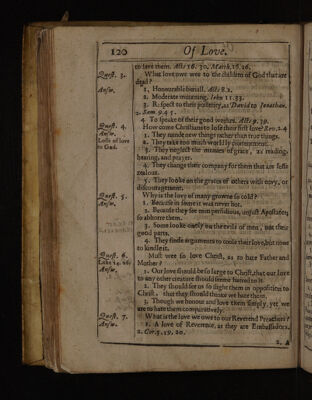 120 Of Love.
to save them. Acts 16. 30. Matth. 16. 26.
Quest. 3. What love owe wee to the children of God that are
dead?
Answ. 1. Honourable buriall. Acts 8. 2.
2. Moderate mourning. John 11. 33.
3. Respect to their posterity, as David to Jonathan.
2. Sam. 9. 4 5.
4 To speake of their good workes. Acts 9. 39.
Quest. 4. How come Christians to lose their first love? Rev. 2. 4
Answ. 1. They minde new things rather than true things.
Losse of love 2. They take too much worldly contentment.
to God. 3. They neglect the meanes of grace, as reading,
hearing, and prayer.
4. They change their company for them that are lesse
zealous.
5. They looke on the graces of others with envy, or
discouragement.
Quest. 5. Why is the love of many growne so cold?
Answ. 1. Because in some it was never hot.
2. Because they see men perfidious, unjust Apostates;
so abhorre them.
3. Some looke onely on the evils of men, not their
good parts.
4. They finde arguments to coole their love, but none
to kindle it.
Quest. 6. Must wee so love Christ, as to hate Father and
Luke 14. 26. Mother?
Answ. 1. Our love should be so large to Christ, that our love
to any other creature should seeme hatred to it.
2. They should for us so slight them in opposition to
Christ, that they should thinke we hate them.
3. Though we honour and love them simply, yet we
are to hate them comparatively.
Quest. 7. What is the love we owe to our Reverend Preachers?
Answ. 1. A love of Reverence, as they are Embassadors.
2. Cor. 5. 19, 20.
2. A